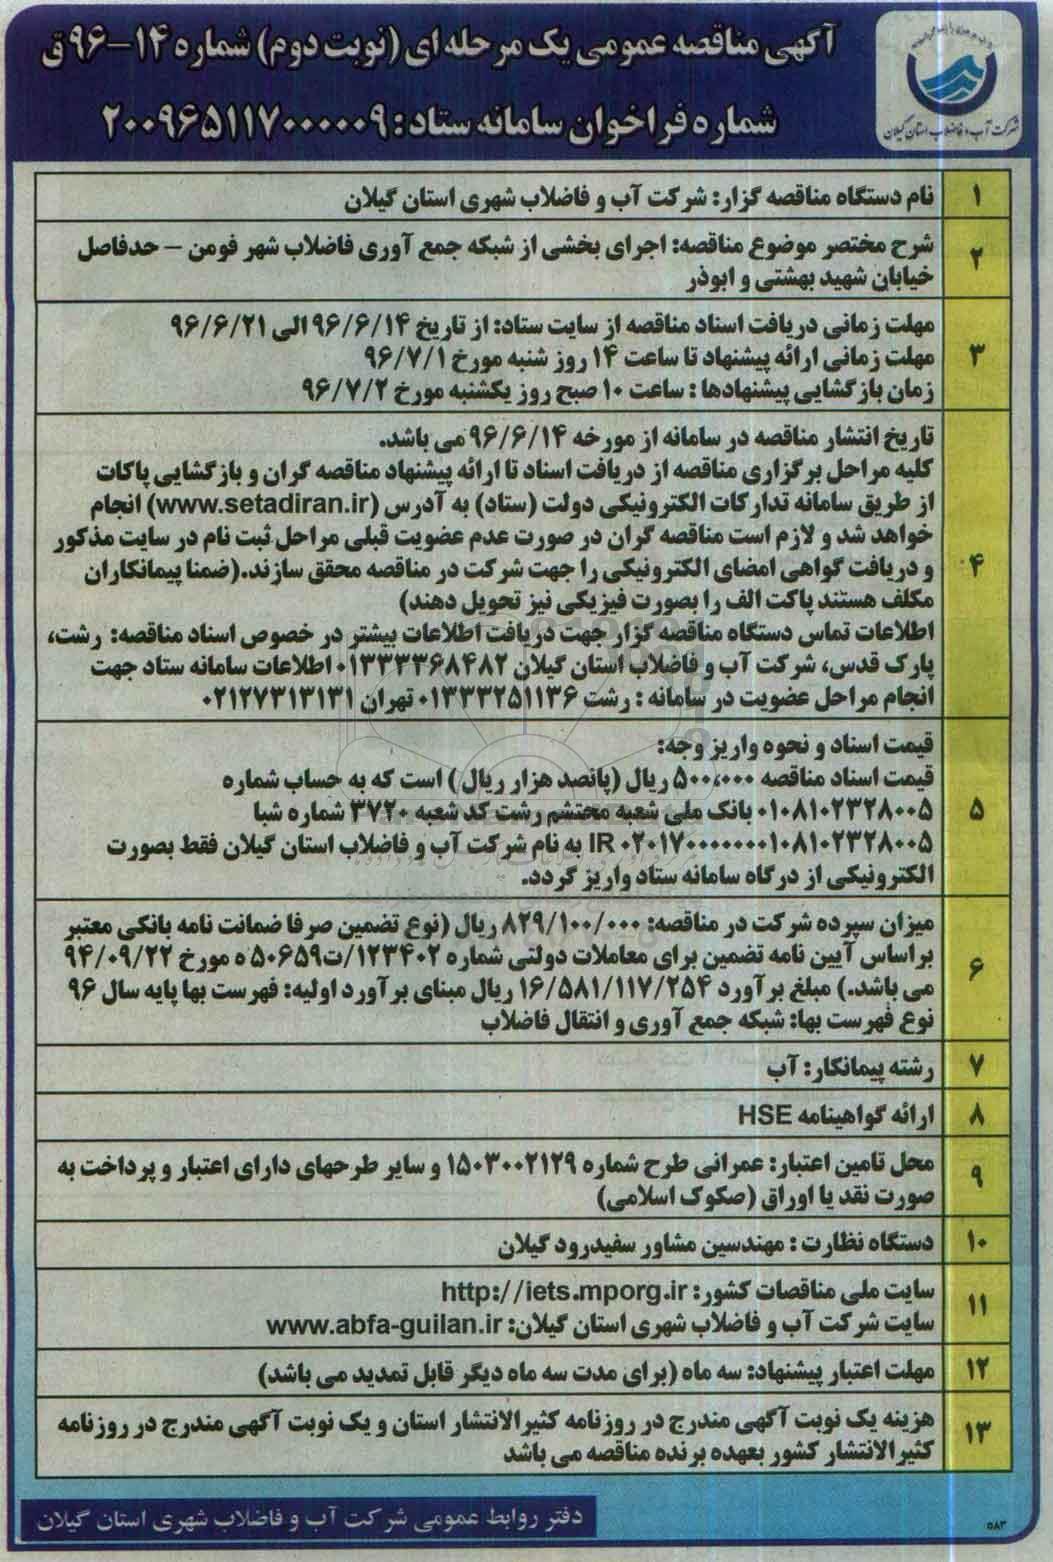 آگهی مناقصه عمومی یک مرحله ای (نوبت دوم) شماره ۱۴-۹۶ ق
شماره فراخوان سامانه ستاد: ۲۰۰۹۶۵۱۱۷۰۰۰۰۰۹
شرکت آب و فاضلاب استان گیلان
۱ نام دستگاه مناقصه گزار: شرکت آب و فاضلاب شهری استان گیلان
۲ شرح مختصر موضوع مناقصه: اجرای بخشی از شبکه جمع آوری فاضلاب شهر فومن - حدفاصل
خیابان شهید بهشتی و ابوذر
۳ مهلت زمانی دریافت اسناد مناقصه از سایت ستاد: از تاریخ ۹۶/۶/۱۴ الی ۹۶/۶/۲۱
مهلت زمانی ارائه پیشنهاد تا ساعت ۱۴ روز شنبه مورخ ۹۶/۷/۱
زمان بازگشایی پیشنهادها : ساعت ۱۰ صبح روز یکشنبه مورخ ۹۶/۷/۲
۴ تاریخ انتشار مناقصه در سامانه از مورخه ۹۶/۶/۱۴ می باشد.
کلیه مراحل برگزاری مناقصه از دریافت اسناد تا ارائه پیشنهاد مناقصه گران و بازگشایی پاکات
از طریق سامانه تدارکات الکترونیکی دولت (ستاد) به آدرس (www.setadiran.ir) انجام
خواهد شد و لازم است مناقصه گران در صورت عدم عضویت قبلی مراحل ثبت نام در سایت مذکور
و دریافت گواهی امضای الکترونیکی را جهت شرکت در مناقصه محقق سازند.(ضمنا پیمانکاران
مکلف هستند پاکت الف را بصورت فیزیکی نیز تحویل دهند)
اطلاعات تماس دستگاه مناقصه گزار جهت دریافت اطلاعات بیشتر در خصوص اسناد مناقصه: رشت،
پارک قدس، شرکت آب و فاضلاب استان گیلان ۰۱۳۳۳۳۶۸۴۸۲ اطلاعات سامانه ستاد جهت
انجام مراحل عضویت در سامانه : رشت ۰۱۳۳۳۲۵۱۱۳۶ تهران ۰۲۱۲۷۳۱۳۱۳۱
۵ قیمت اسناد و نحوه واریز وجه:
قیمت اسناد مناقصه ۵۰۰،۰۰۰ ریال (پانصد هزار ریال) است که به حساب شماره
۰۱۰۸۱۰۲۳۲۸۰۰۵ بانک ملی شعبه محتشم رشت کد شعبه ۳۷۲۰ شماره شبا
IR ۰۲۰۱۷۰۰۰۰۰۰۰۱۰۸۱۰۲۳۲۸۰۰۵ به نام شرکت آب و فاضلاب استان گیلان فقط بصورت
الکترونیکی از درگاه سامانه ستاد واریز گردد.
۶ میزان سپرده شرکت در مناقصه: ۸۲۹/۱۰۰/۰۰۰ ریال (نوع تضمین صرفا ضمانت نامه بانکی معتبر
براساس آیین نامه تضمین برای معاملات دولتی شماره ۱۲۳۴۰۲/ت۵۰۶۵۹ ه مورخ ۹۴/۰۹/۲۲
می باشد.) مبلغ برآورد ۱۶/۵۸۱/۱۱۷/۲۵۴ ریال مبنای برآورد اولیه: فهرست بها پایه سال ۹۶
نوع فهرست بها: شبکه جمع آوری و انتقال فاضلاب
۷ رشته پیمانکار: آب
۸ ارائه گواهینامه HSE
۹ محل تامین اعتبار: عمرانی طرح شماره ۱۵۰۳۰۰۲۱۲۹ و سایر طرحهای دارای اعتبار و پرداخت به
صورت نقد یا اوراق (صکوک اسلامی)
۱۰ دستگاه نظارت : مهندسین مشاور سفیدرود گیلان
۱۱ سایت ملی مناقصات کشور: http://iets.mporg.ir
سایت شرکت آب و فاضلاب شهری استان گیلان: www.abfa-guilan.ir
۱۲ مهلت اعتبار پیشنهاد: سه ماه (برای مدت سه ماه دیگر قابل تمدید می باشد)
۱۳ هزینه یک نوبت آگهی مندرج در روزنامه کثیرالانتشار استان و یک نوبت آگهی مندرج در روزنامه
کثیرالانتشار کشور بعهده برنده مناقصه می باشد
دفتر روابط عمومی شرکت آب و فاضلاب شهری استان گیلان
۵۸۳